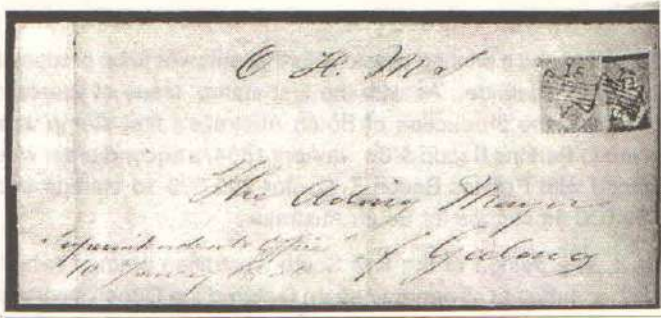 O. H. M. S
The Acting Mayor
of Geelong
Superintendents Office
10 January